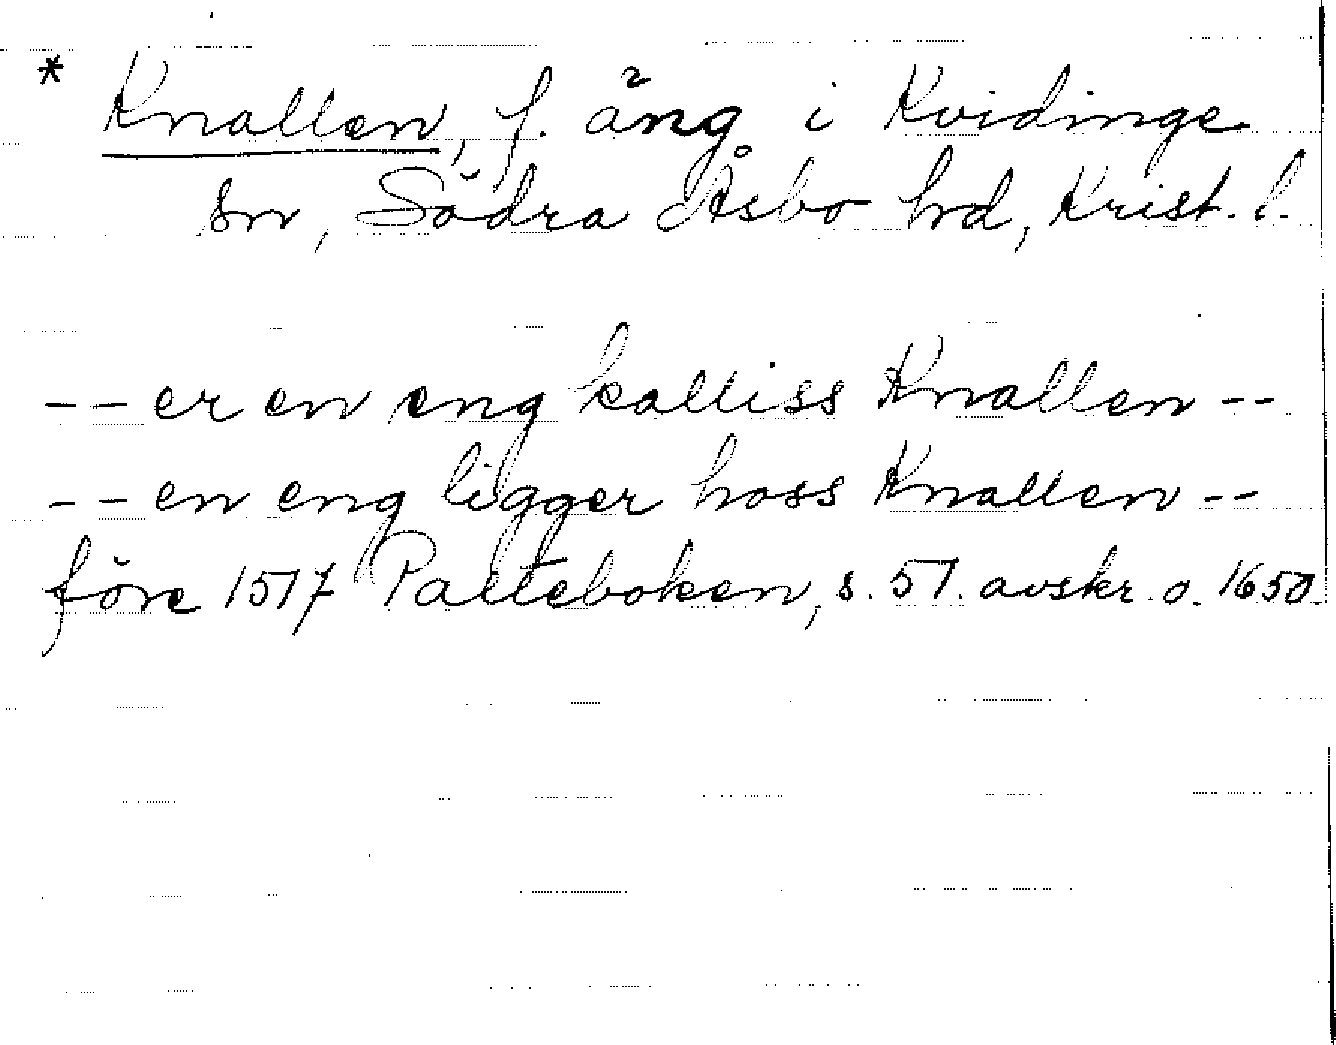 * Knallen, f. äng i Kvidinge
sn, Södra Åsbo hd, Krist. l.
-- er en eng kalliss Knallen --
-- en eng ligger hoss Knallen --
före 1517 Palteboken, s. 51. avskr. o. 1650.